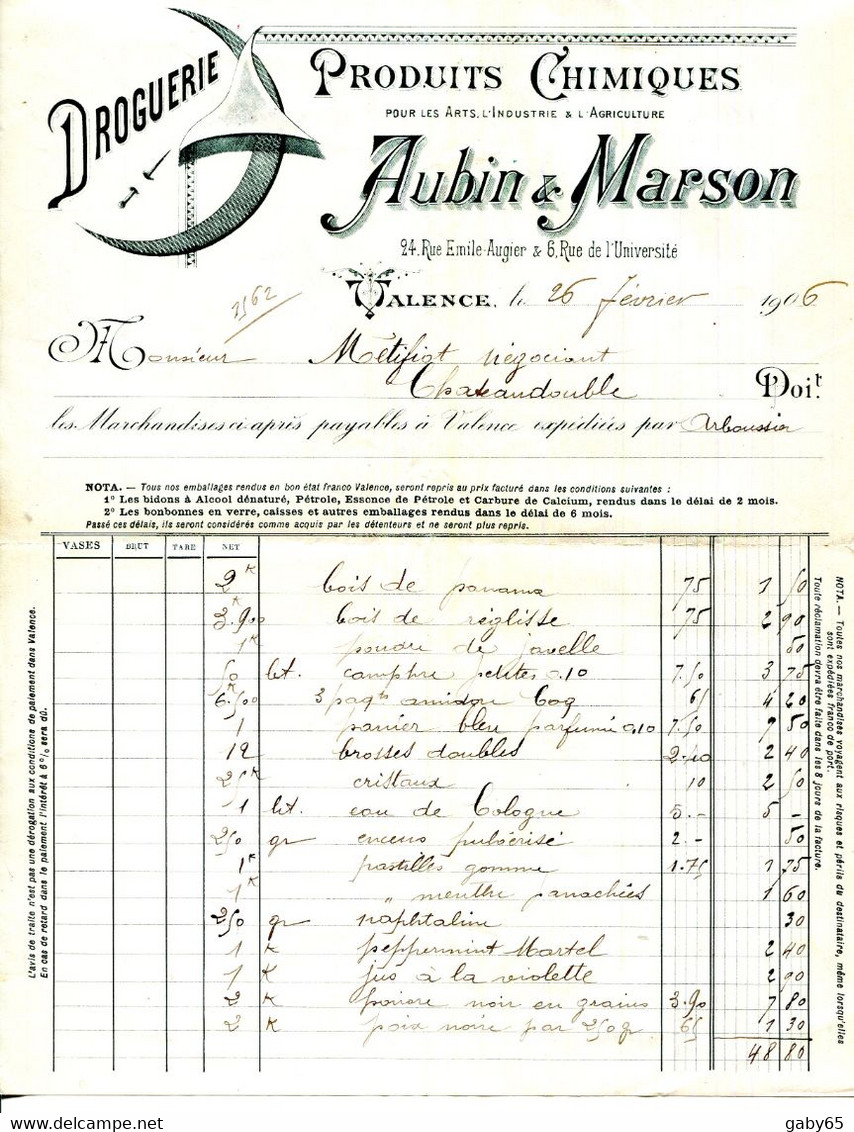 DROGUERIE
PRODUITS CHIMIQUES
POUR LES ARTS, L'INDUSTRIE & L'AGRICULTURE
Aubin & Marson
24, Rue Emile-Augier & 6, Rue de l'Université
2562
VALENCE, le 26 février 1906
Monsieur Métifiot négociant
Chateaudouble Doit
les Marchandises ci-après payables à Valence expédiées par Arboussier
NOTA. — Tous nos emballages rendus en bon état franco Valence, seront repris au prix facturé dans les conditions suivantes :
1° Les bidons à Alcool dénaturé, Pétrole, Essence de Pétrole et Carbure de Calcium, rendus dans le délai de 2 mois.
2° Les bonbonnes en verre, caisses et autres emballages rendus dans le délai de 6 mois.
Passé ces délais, ils seront considérés comme acquis par les détenteurs et ne seront plus repris.
VASES BRUT TARE NET
2 K bois de panama 75 1 50
3 K 900 bois de réglisse 75 2 90
1 K poudre de javelle 50
50 bt. camphre petites 0.10 7.50 3 75
6 K 500 3 paqts amidon Coq 65 4 20
1 panier bleu parfumé 0,10 7.50 7 50
12 brosses doubles 2.40 2 40
25 K cristaux 10 2 50
1 lit. eau de Cologne 5.- 5 -
250 gr encens pulvérisé 2.- 50
1 K pastilles gomme 1.75 1 75
1 K " menthe panachées 1 60
250 gr naphtaline 30
1 K peppermint Martel 2 40
1 K jus à la violette 2 90
2 K poivre noir en grains 3.90 7 80
2 K poix noire par 250 gr 65 1 30
48 80
L'avis de traite n'est pas une dérogation aux conditions de paiement dans Valence.
En cas de retard dans le paiement l'intérêt à 6 % sera dû.
NOTA. — Toutes nos marchandises voyagent aux risques et périls du destinataire, même lorsqu'elles
sont expédiées franco de port.
Toute réclamation devra être faite dans les 8 jours de la facture.
gaby65